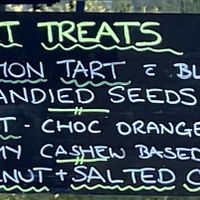 T TREATS
MON TART c BL
ANDIED SEEDS
T - CHOC ORANGE
MY CASHEW BASED
NUT + SALTED C